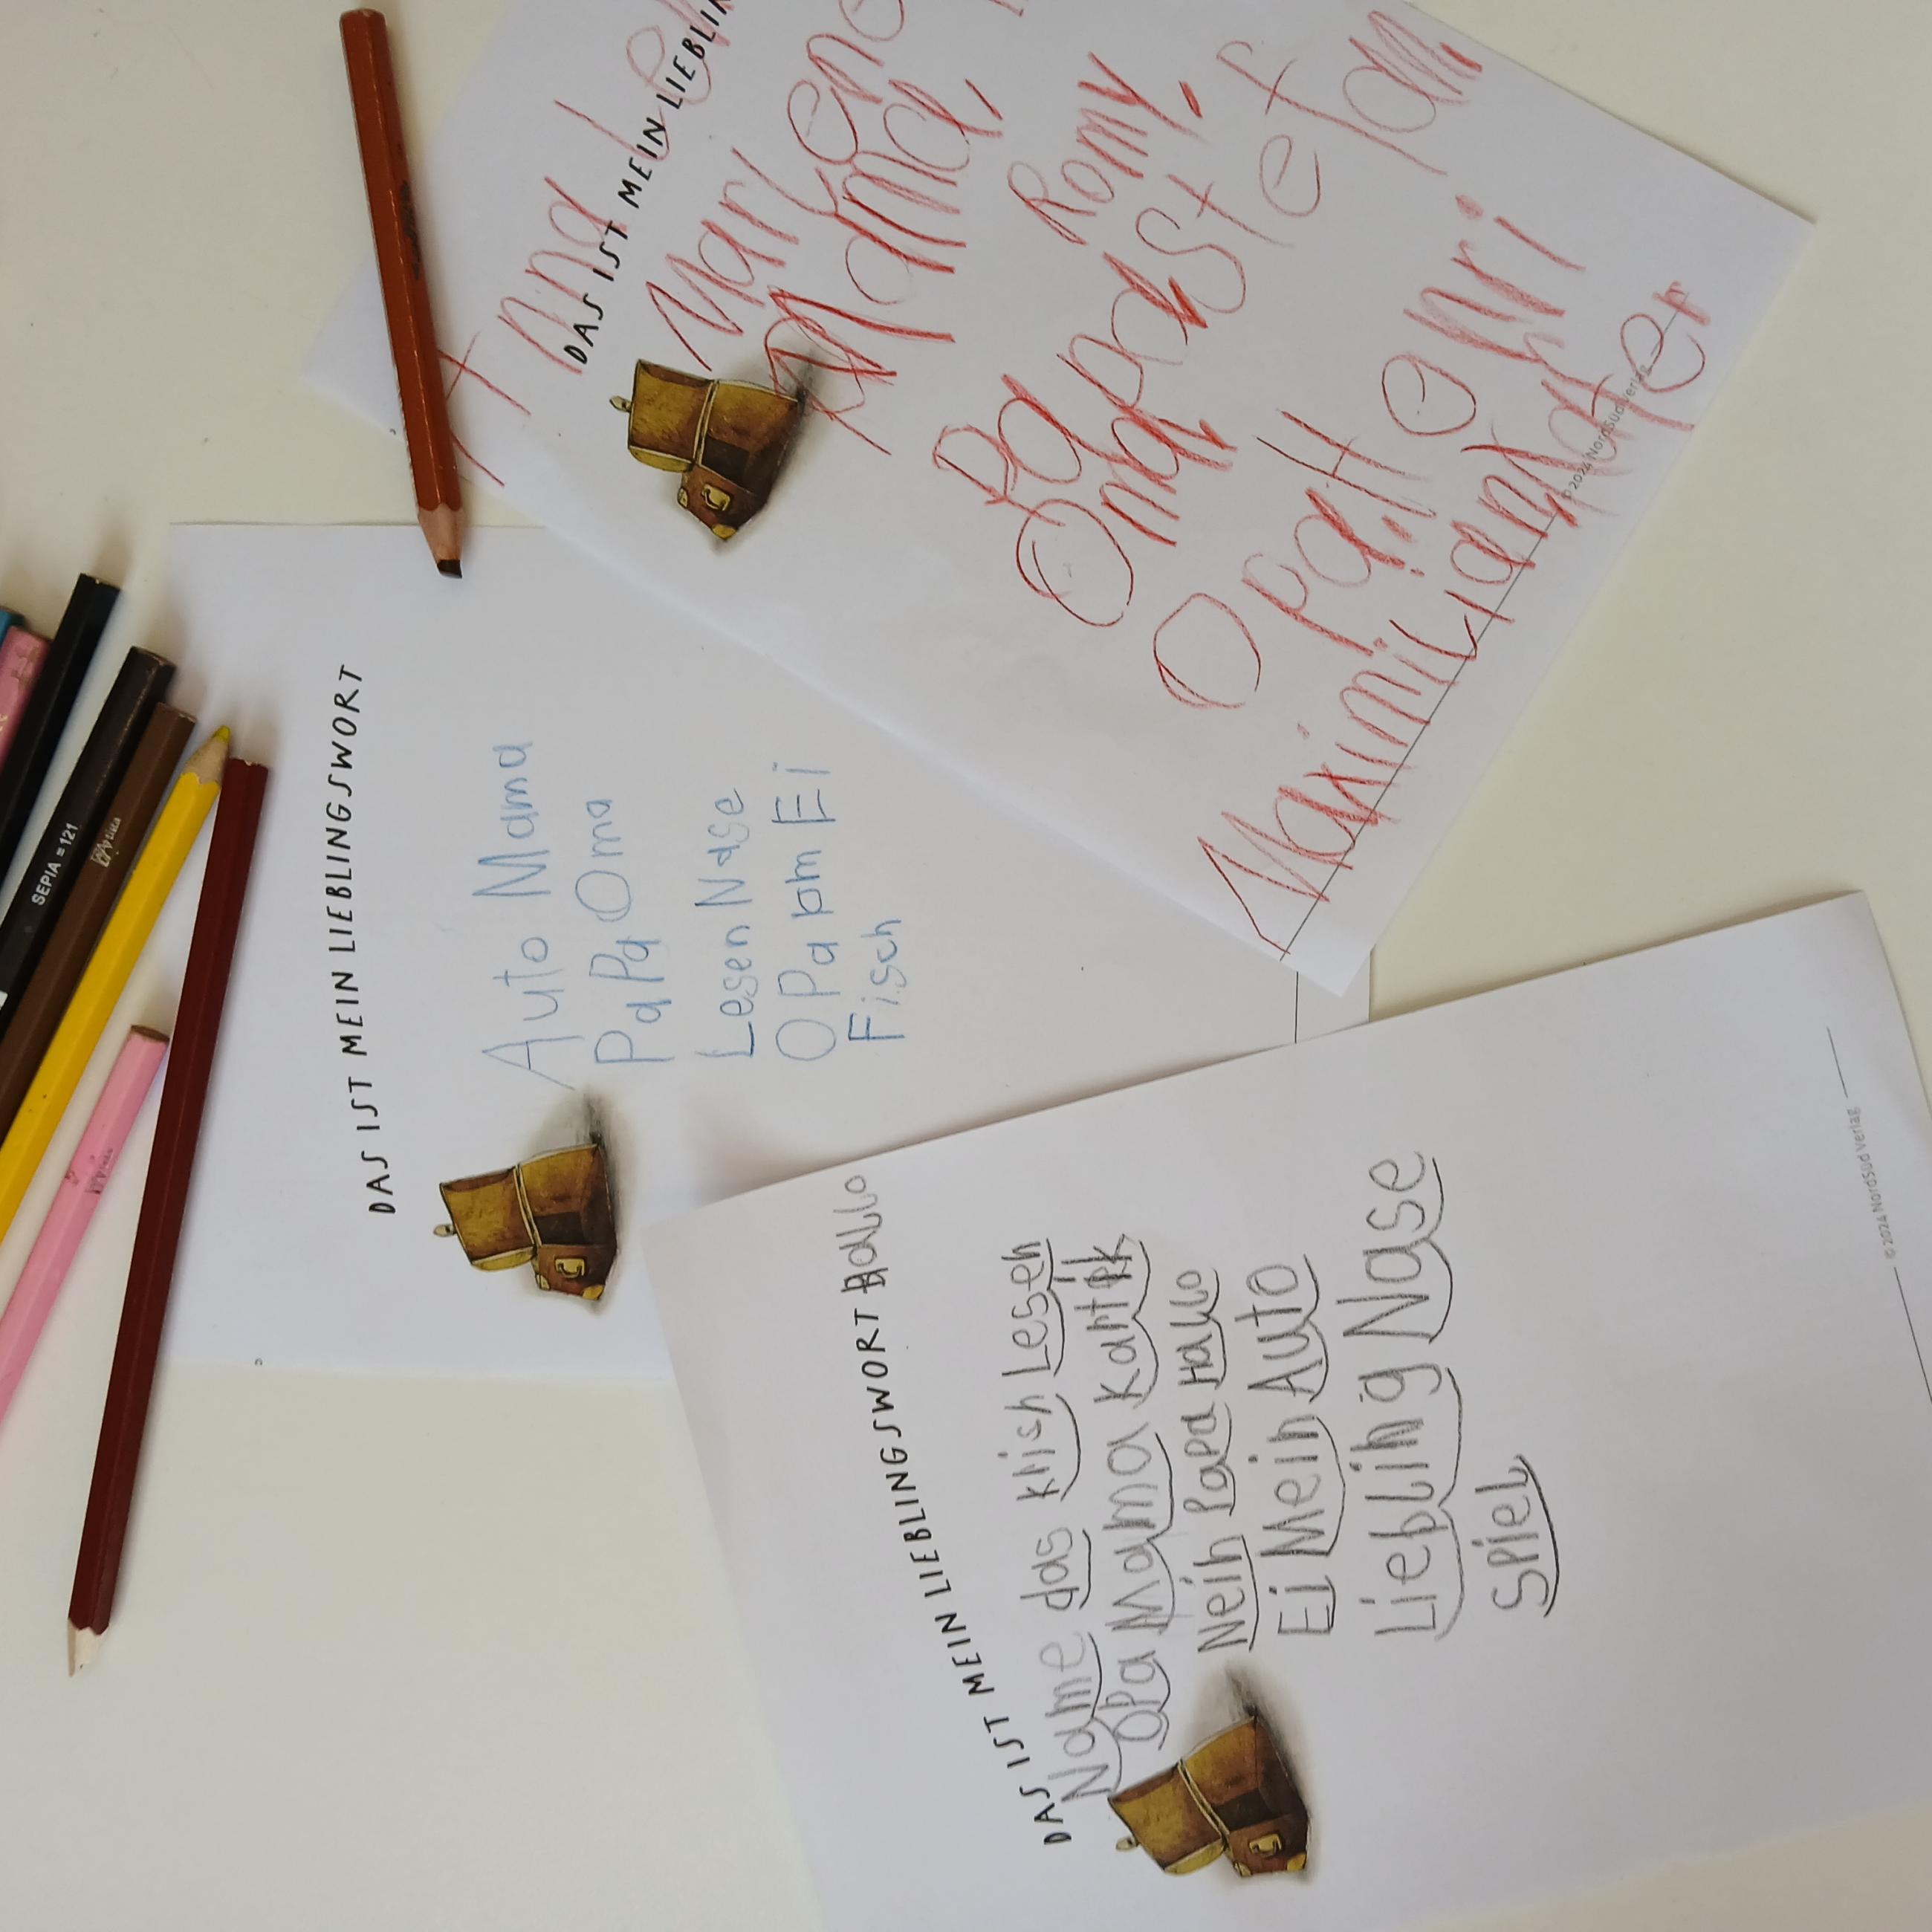 DAS IST MEIN LIEBLIN
Anna
Marlene
Mama
Romy
Papa Stefan
Oma
Opa Henri
Maximilian
© 2024 NordSüd Verlag
DAS IST MEIN LIEBLINGSWORT
Auto Mama
PaPa Oma
Lesen Nase
OPa Ei
Fisch
DAS IST MEIN LIEBLINGSWORT Hallo
Name das Lesen
OPa Mama
Nein Papa Hallo
Ei Mein Auto
Liebling Nase
SPieL
© 2024 NordSüd Verlag
SEPIA = 121